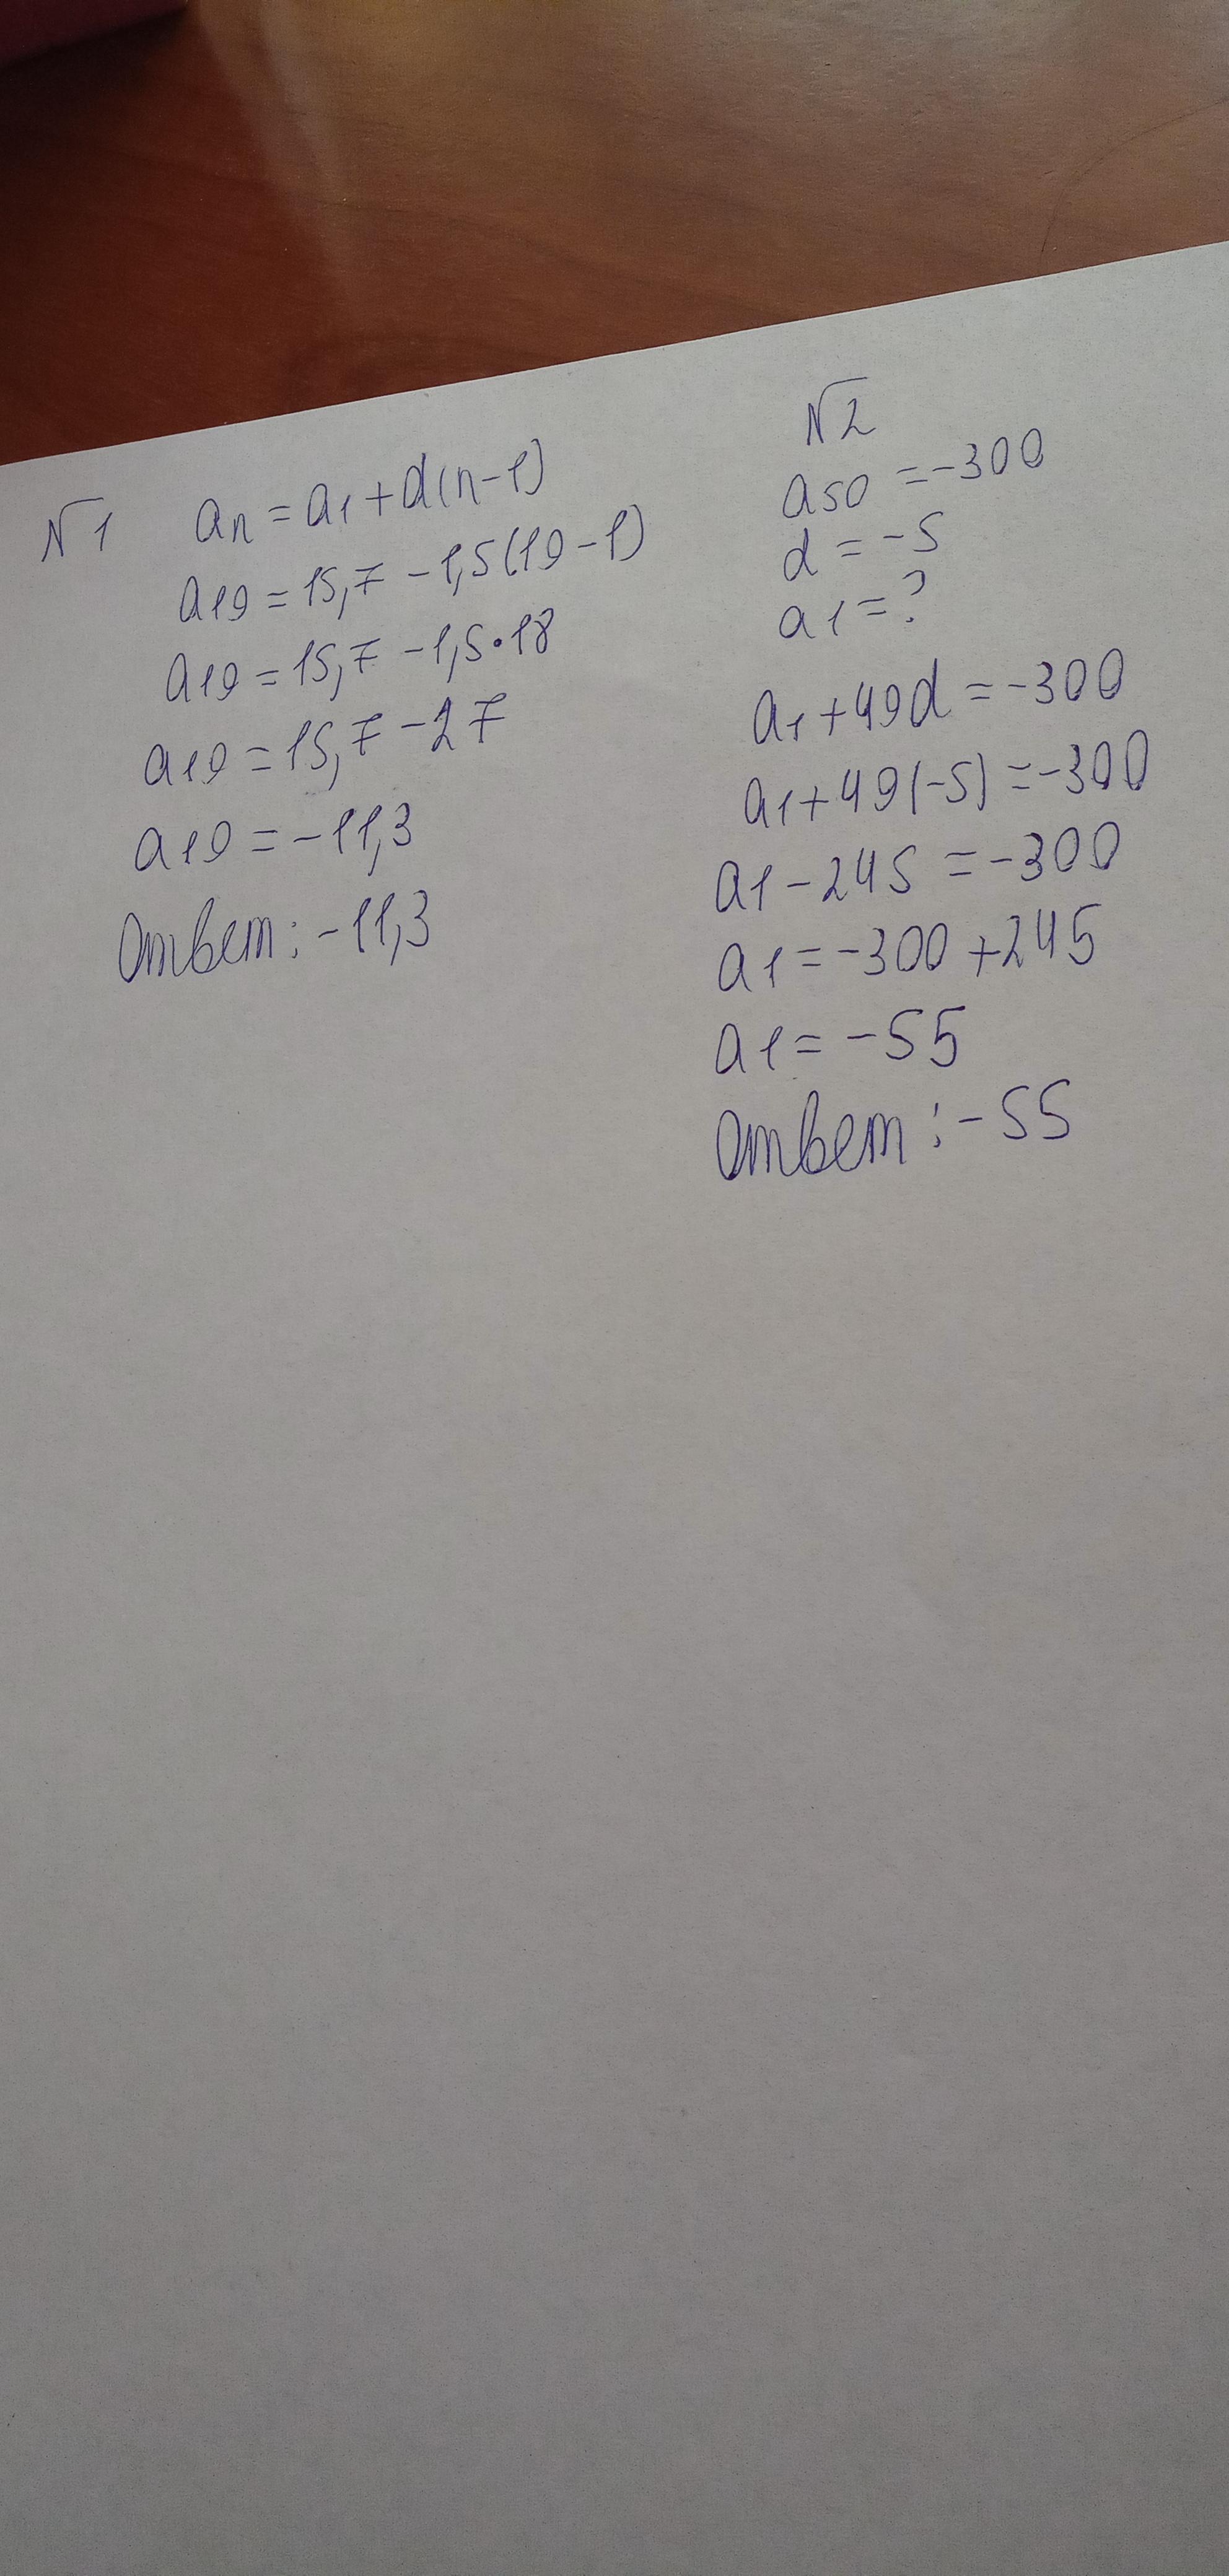 №1
an = a1 + d(n-1)
a19 = 15,7 - 1,5(19-1)
a19 = 15,7 - 1,5•18
a19 = 15,7 - 27
a19 = -11,3
Ответ: -11,3
№2
a50 = -300
d = -5
a1 = ?
a1 + 49d = -300
a1 + 49(-5) = -300
a1 - 245 = -300
a1 = -300 + 245
a1 = -55
Ответ: -55